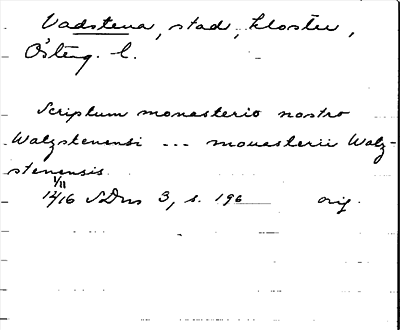 Vadstena, stad, kloster,
Österg. l.
Scriptum monasterio nostro
Walzstenensi --- monasterii Walz-
stenensis
1/11
1416 SDns 3, s. 196 orig.